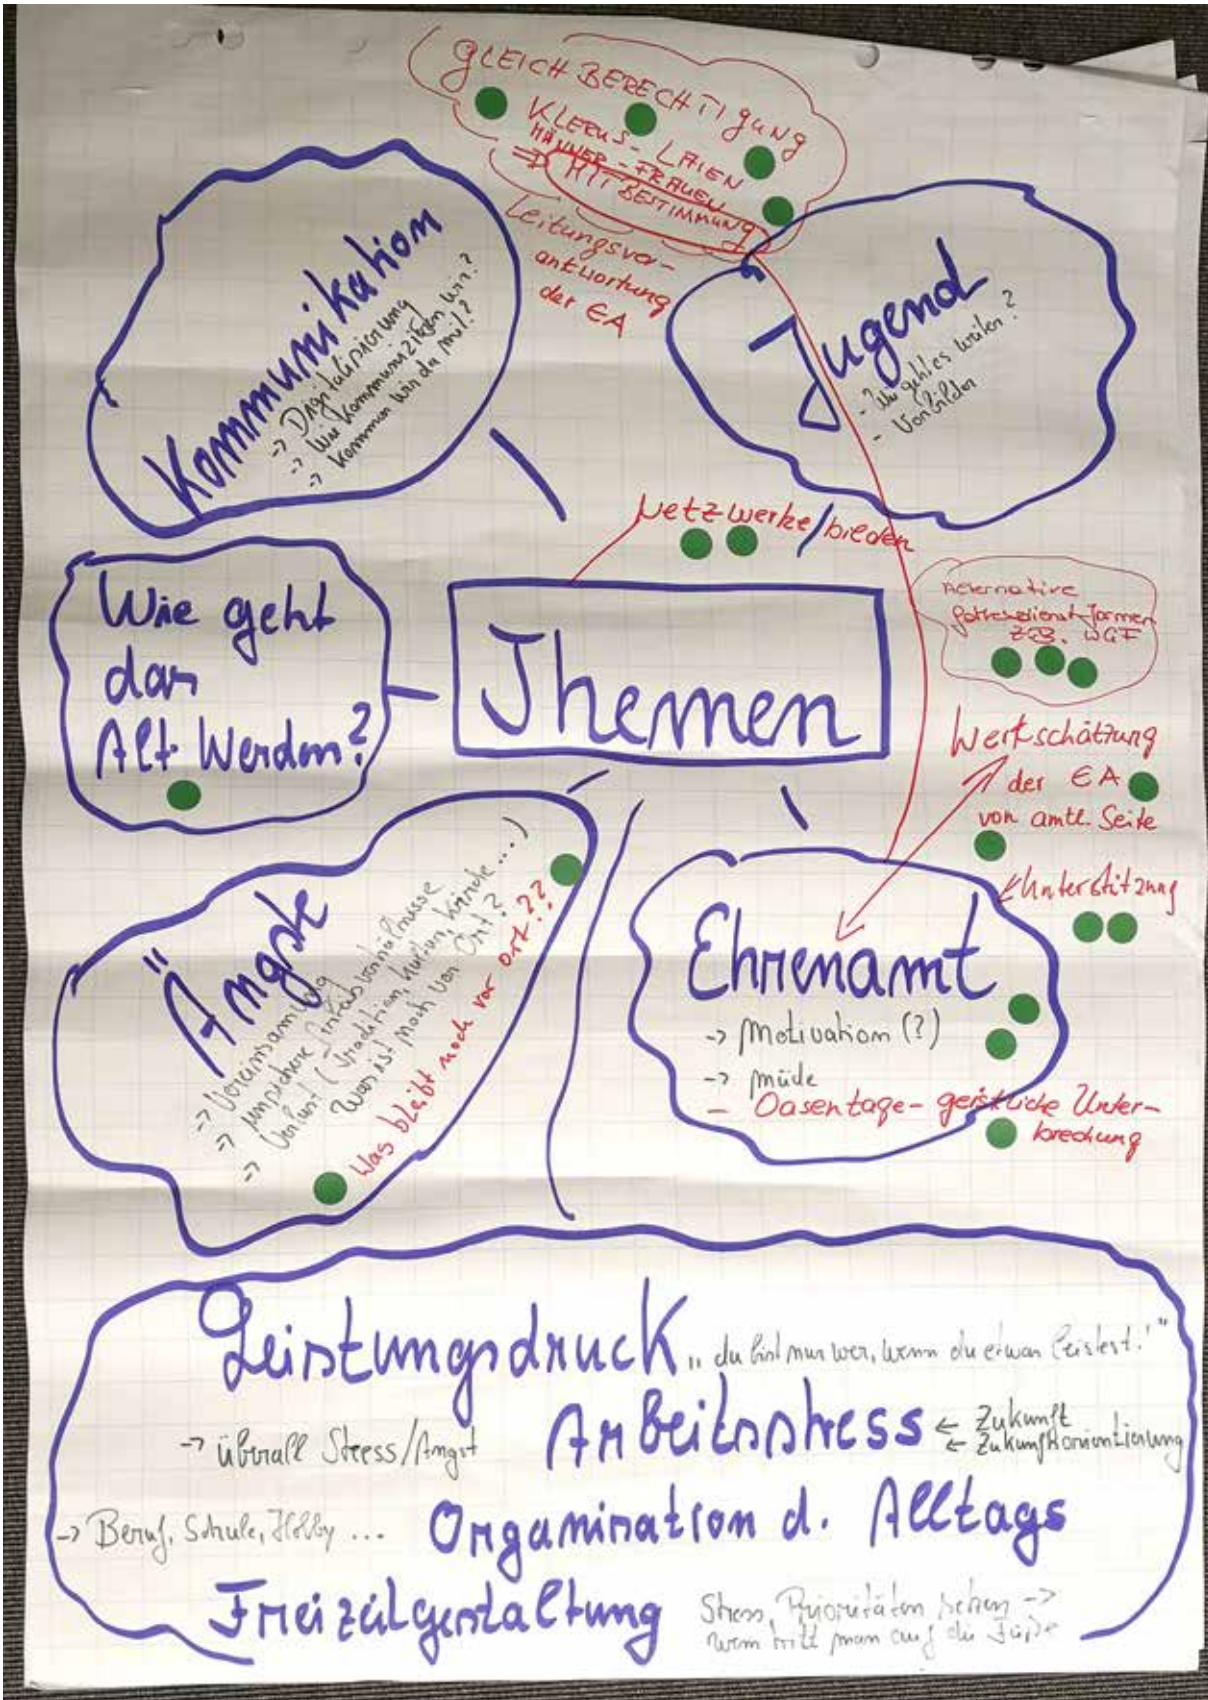 GLEICHBERECHTIGUNG
KLERUS - LAIEN
MÄNNER - FRAUEN
=> MITBESTIMMUNG
Leitungsver-
antwortung
der EA
Kommunikation
-> Digitalisierung
-> Wie kommunizieren wir?
-> kommen wir da mit?
Jugend
- Wie geht es weiter?
- Vorbilder
Netzwerke bilden
Wie geht
das
Alt Werden?
Themen
Alternative
Gottesdienst-formen
z.B. WGF
Wertschätzung
der EA
von amtl. Seite
Unterstützung
Ängste
-> Vereinsamung
-> unsichere Arbeitsverhältnisse
-> Verlust (Tradition, Kultur, Kirche ...)
Was ist noch vor Ort?
Was bleibt noch vor Ort??
Ehrenamt
-> Motivation (?)
-> müde
- Oasentage - geistliche Unter-
brechung
Leistungsdruck „du bist nur wer, wenn du etwas leistest!"
-> überall Stress/Angst
Arbeitsstress <- Zukunft
<- Zukunftsorientierung
-> Beruf, Schule, Hobby ...
Organisation d. Alltags
Freizeitgestaltung
Stress, Prioritäten setzen ->
wem tritt man auf die Füße